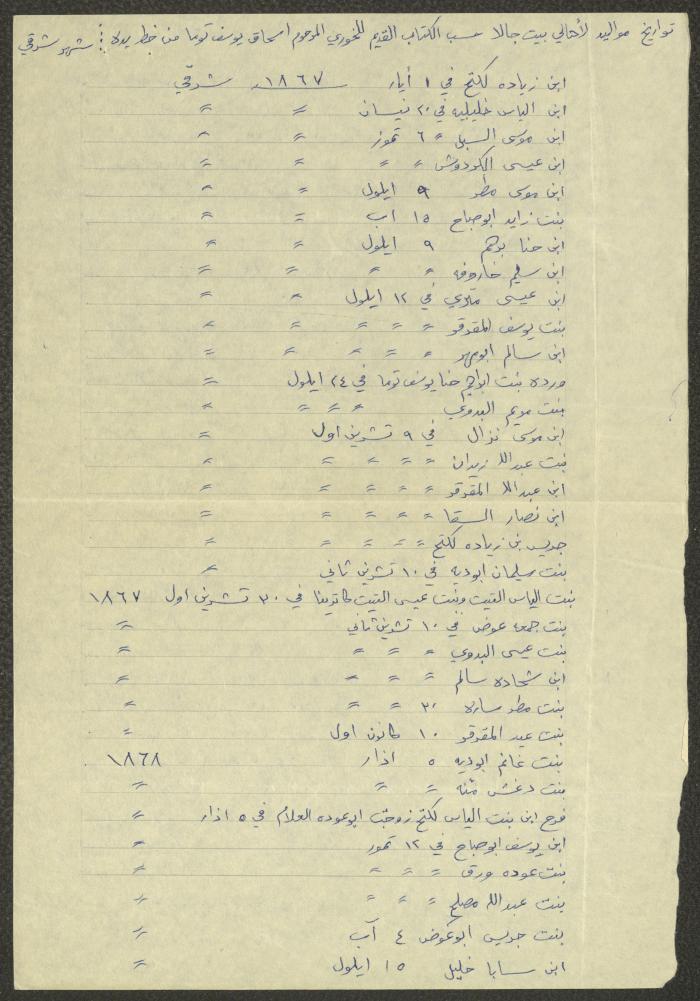 تواريخ مواليد لأهالي بيت جالا حسب الكتاب القديم للخوري المرحوم اسحاق يوسف توما من خط يده : شهر شرقي
ابن زياده لكتح في ١ أيار ١٨٦٧ شرقي
ابن الياس خليليه في ٢٠ نيسان = =
ابن موسى السبل = ٦ تموز = =
ابن عيسى الكردوش = = = =
ابن موسى مطر ٩ ايلول = =
بنت زايد ابو صباح ١٥ اب = =
ابن حنا برهم ٩ ايلول = =
ابن سليم خاروفه = = = =
ابن عيسى في ١٢ ايلول = =
بنت يوسف المقرقر = = = = =
ابن سالم ابو مهر = = = = =
ورده بنت ابراهيم حنا يوسف توما في ٢٤ ايلول =
بنت مريم البدوي = = = =
ابن موسى نزال في ٩ تشرين اول =
بنت عبدالله زيدان = = = = =
ابن عبدالله المقرقر = = = = =
ابن نصار السقا = = = = =
جريس بن زياده لكتح = = = = =
بنت سلمان ابوديه في ١٠ تشرين ثاني =
بنت الياس التيت وبنت عيسى التيت كاترينا في ٣٠ تشرين اول ١٨٦٧
بنت جمعه عوض في ١٠ تشرين ثاني =
بنت عيسى البدوي = = = =
ابن شحاده سالم = = = =
بنت مطر ساره ٣٠ = = =
بنت عيد المقرقر ١٠ كانون اول =
بنت غانم ابوديه ٥ اذار ١٨٦٨
بنت دغش = = =
فرح ابن بنت الياس لكتح زوجة ابو عوده العلام في ٥ اذار =
ابن يوسف ابو صباح في ١٢ تموز =
بنت عوده ورق = = = =
بنت عبدالله مصلح = = = =
بنت جريس ابو عوض ٤ آب =
ابن سابا خليل ١٥ ايلول =